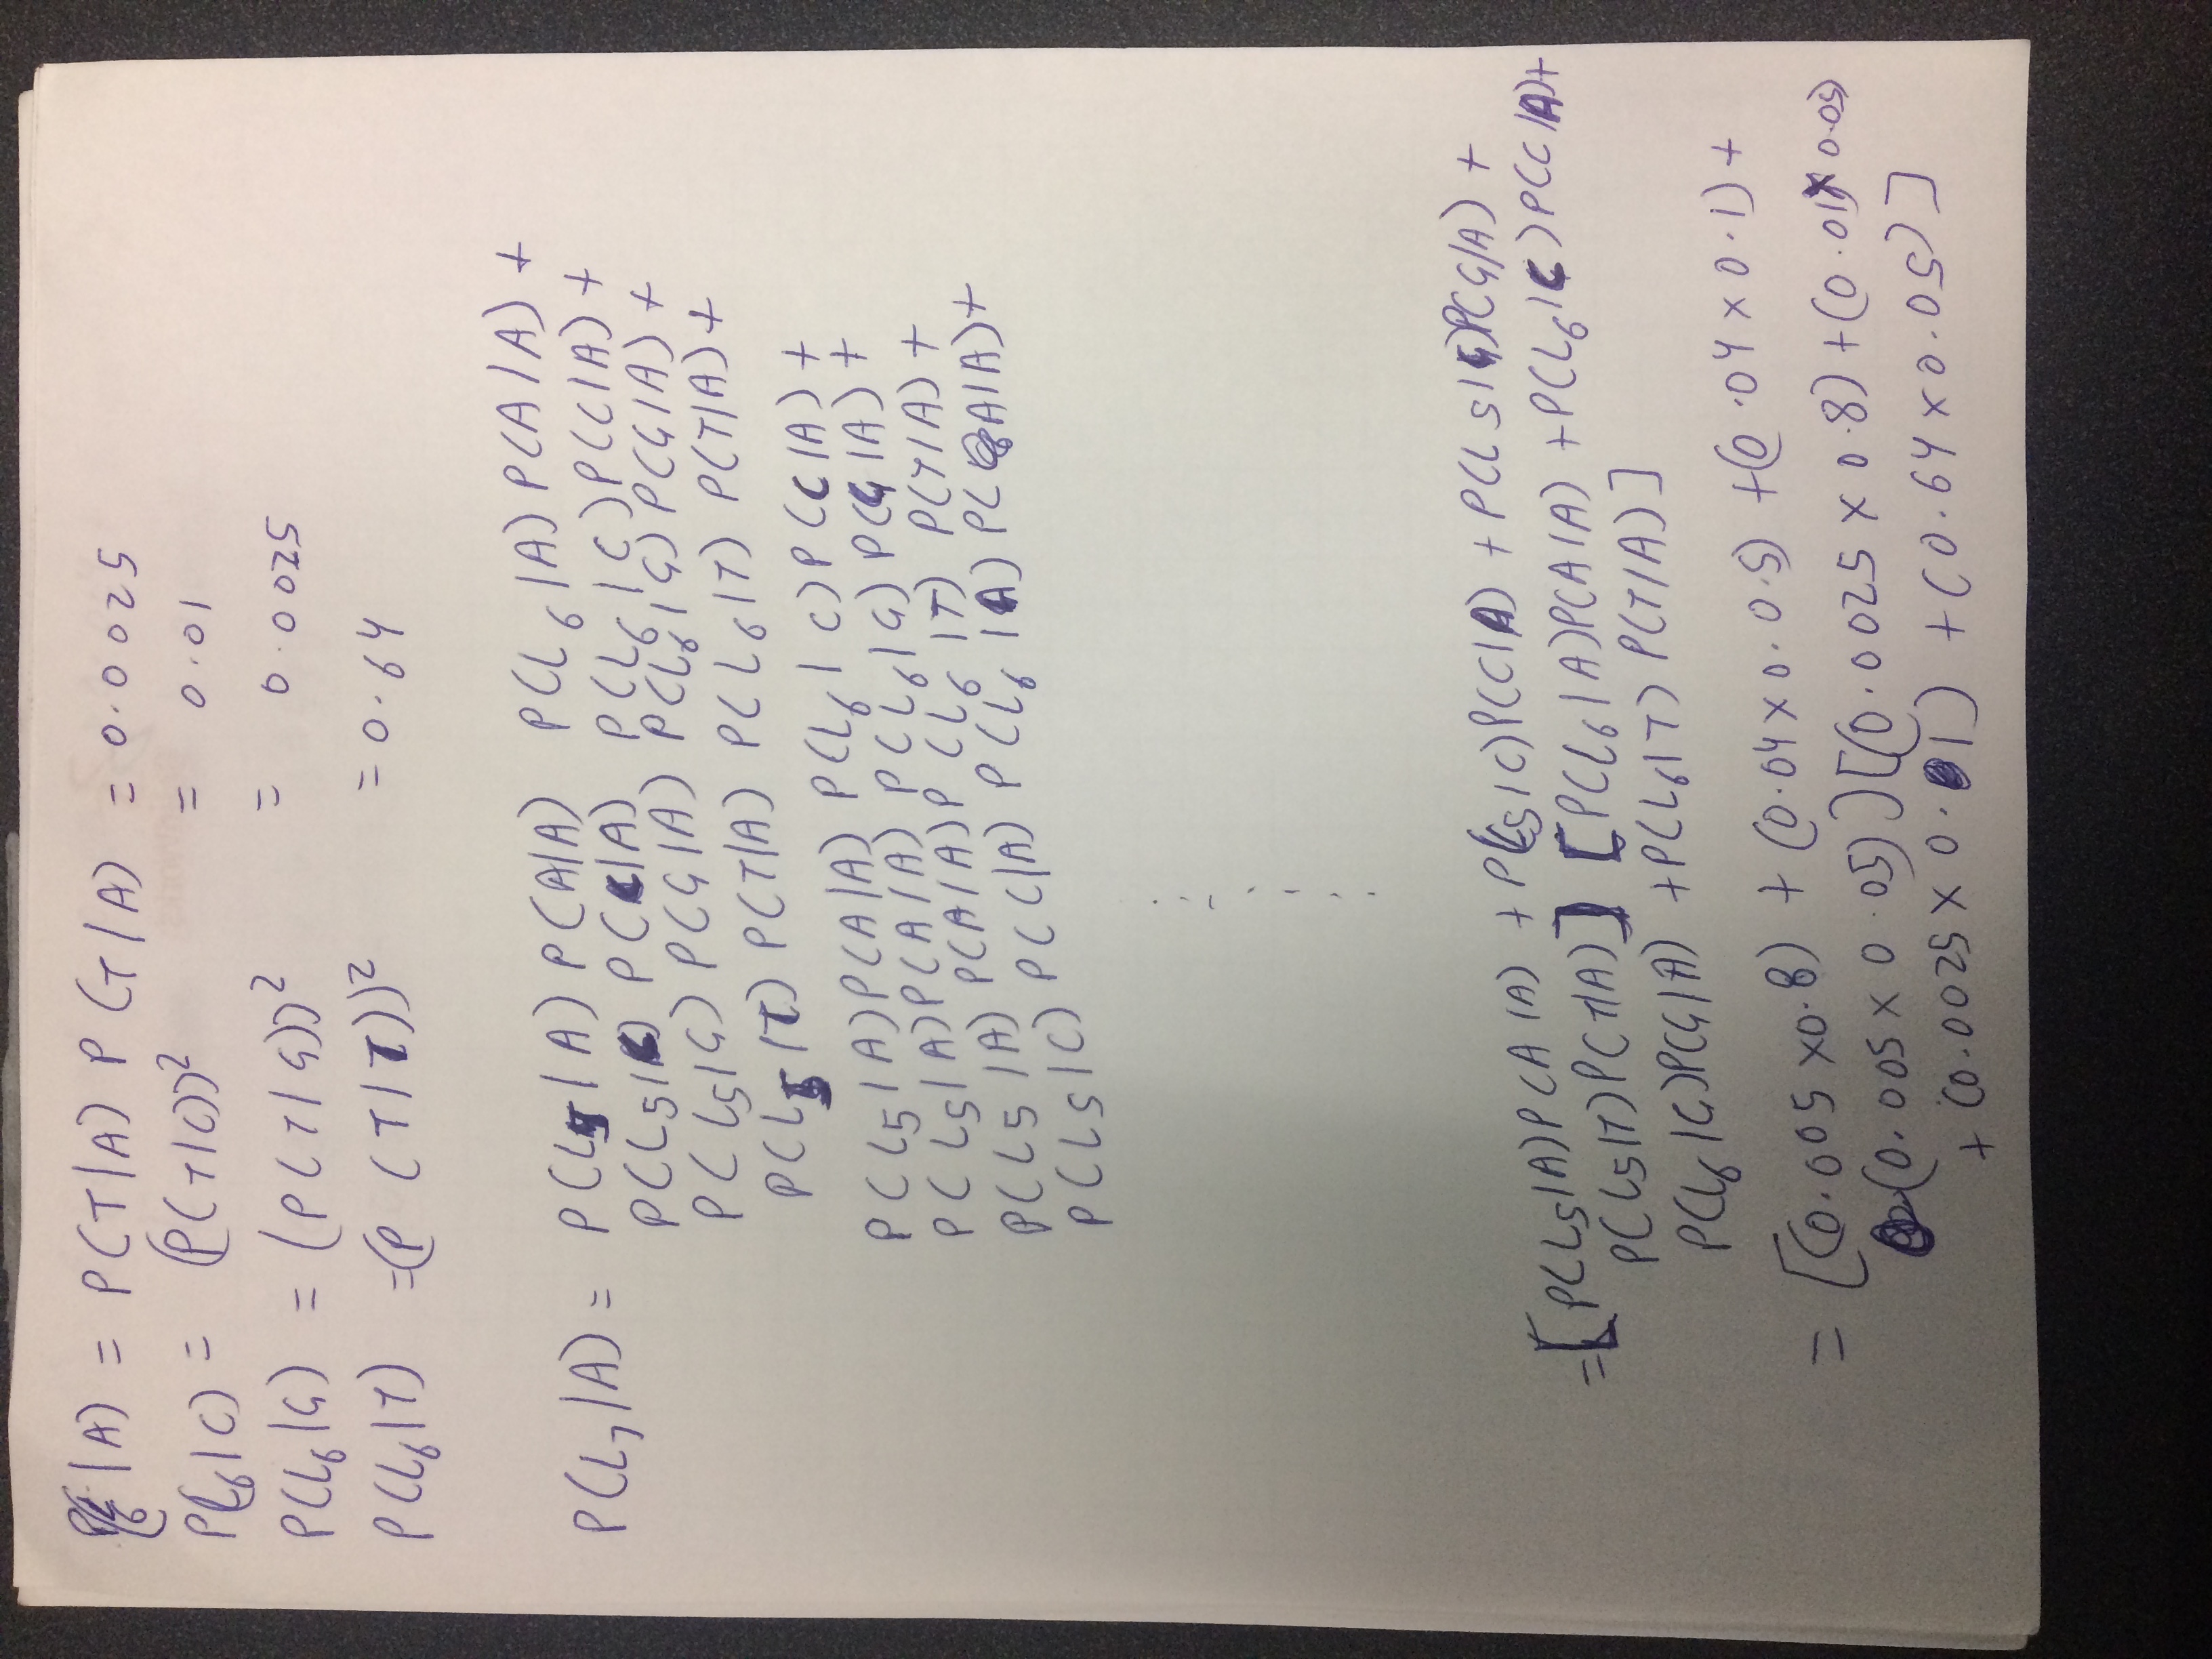 P(L6|A) = P(T|A) P(T|A) = 0.0025
P(L6|C) = (P(T|C))² = 0.01
P(L6|G) = (P(T|G))² = 0.0025
P(L6|T) = (P(T|T))² = 0.64
P(L7|A) = P(L5|A) P(A|A) P(L6|A) P(A|A) +
P(L5|C) P(C|A) P(L6|C) P(C|A) +
P(L5|G) P(G|A) P(L6|G) P(G|A) +
P(L5|T) P(T|A) P(L6|T) P(T|A) +
P(L5|A) P(A|A) P(L6|C) P(C|A) +
P(L5|A) P(A|A) P(L6|G) P(G|A) +
P(L5|A) P(A|A) P(L6|T) P(T|A) +
P(L5|C) P(C|A) P(L6|A) P(A|A) +
= [P(L5|A)P(A|A) + P(L5|C)P(C|A) + P(L5|G)P(G|A) +
P(L5|T)P(T|A)] [P(L6|A)P(A|A) + P(L6|C)P(C|A) +
P(L6|G)P(G|A) + P(L6|T) P(T|A)]
= [(0.005 × 0.8) + (0.04 × 0.0.5) + (0.04 × 0.1) +
(0.005 × 0.05)] [(0.0025 × 0.8) + (0.01 × 0.05)
+ (0.0025 × 0.1) + (0.64 × 0.05)]